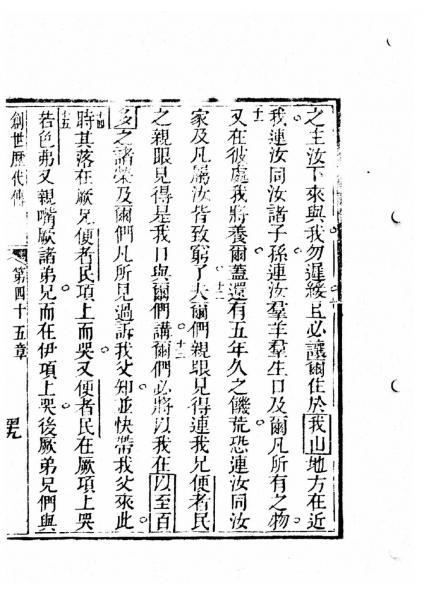 之主汝下來與我勿遲緩且必讓爾住於我山地方在近
我連汝同汝諸子孫連汝羣羊羣生口及爾凡所有之物
十一又在彼處我將養爾蓋還有五年久之饑荒恐連汝同汝
家及凡屬汝皆致窮了十二夫爾們親眼見得連我兄便者民
之親眼見得是我口與爾們講十三爾們必將以我在以至百
多之諸榮及爾們凡所見過訴我父知並快帶我父來此
十四時其落在厥兄便者民項上而哭又便者民在厥項上哭
十五若色弗又親嘴厥諸弟兄而在伊項上哭後厥弟兄們與
創世歷代傳 第四十五章